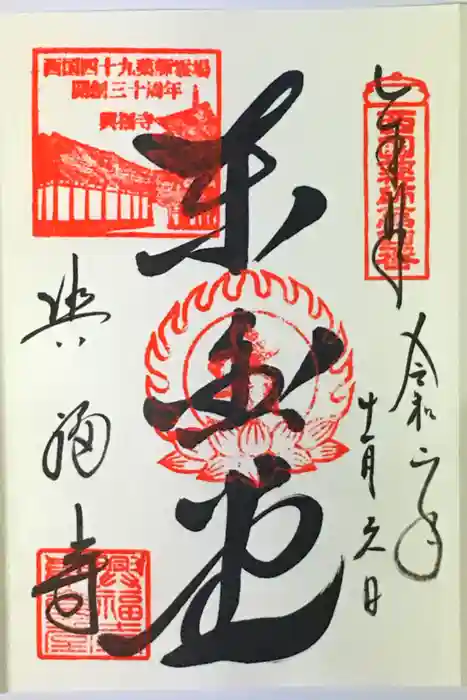 西国薬師第四番
令和二年
十一月
東金堂
西国四十九薬師霊場
開創三十周年
興福寺
興福寺